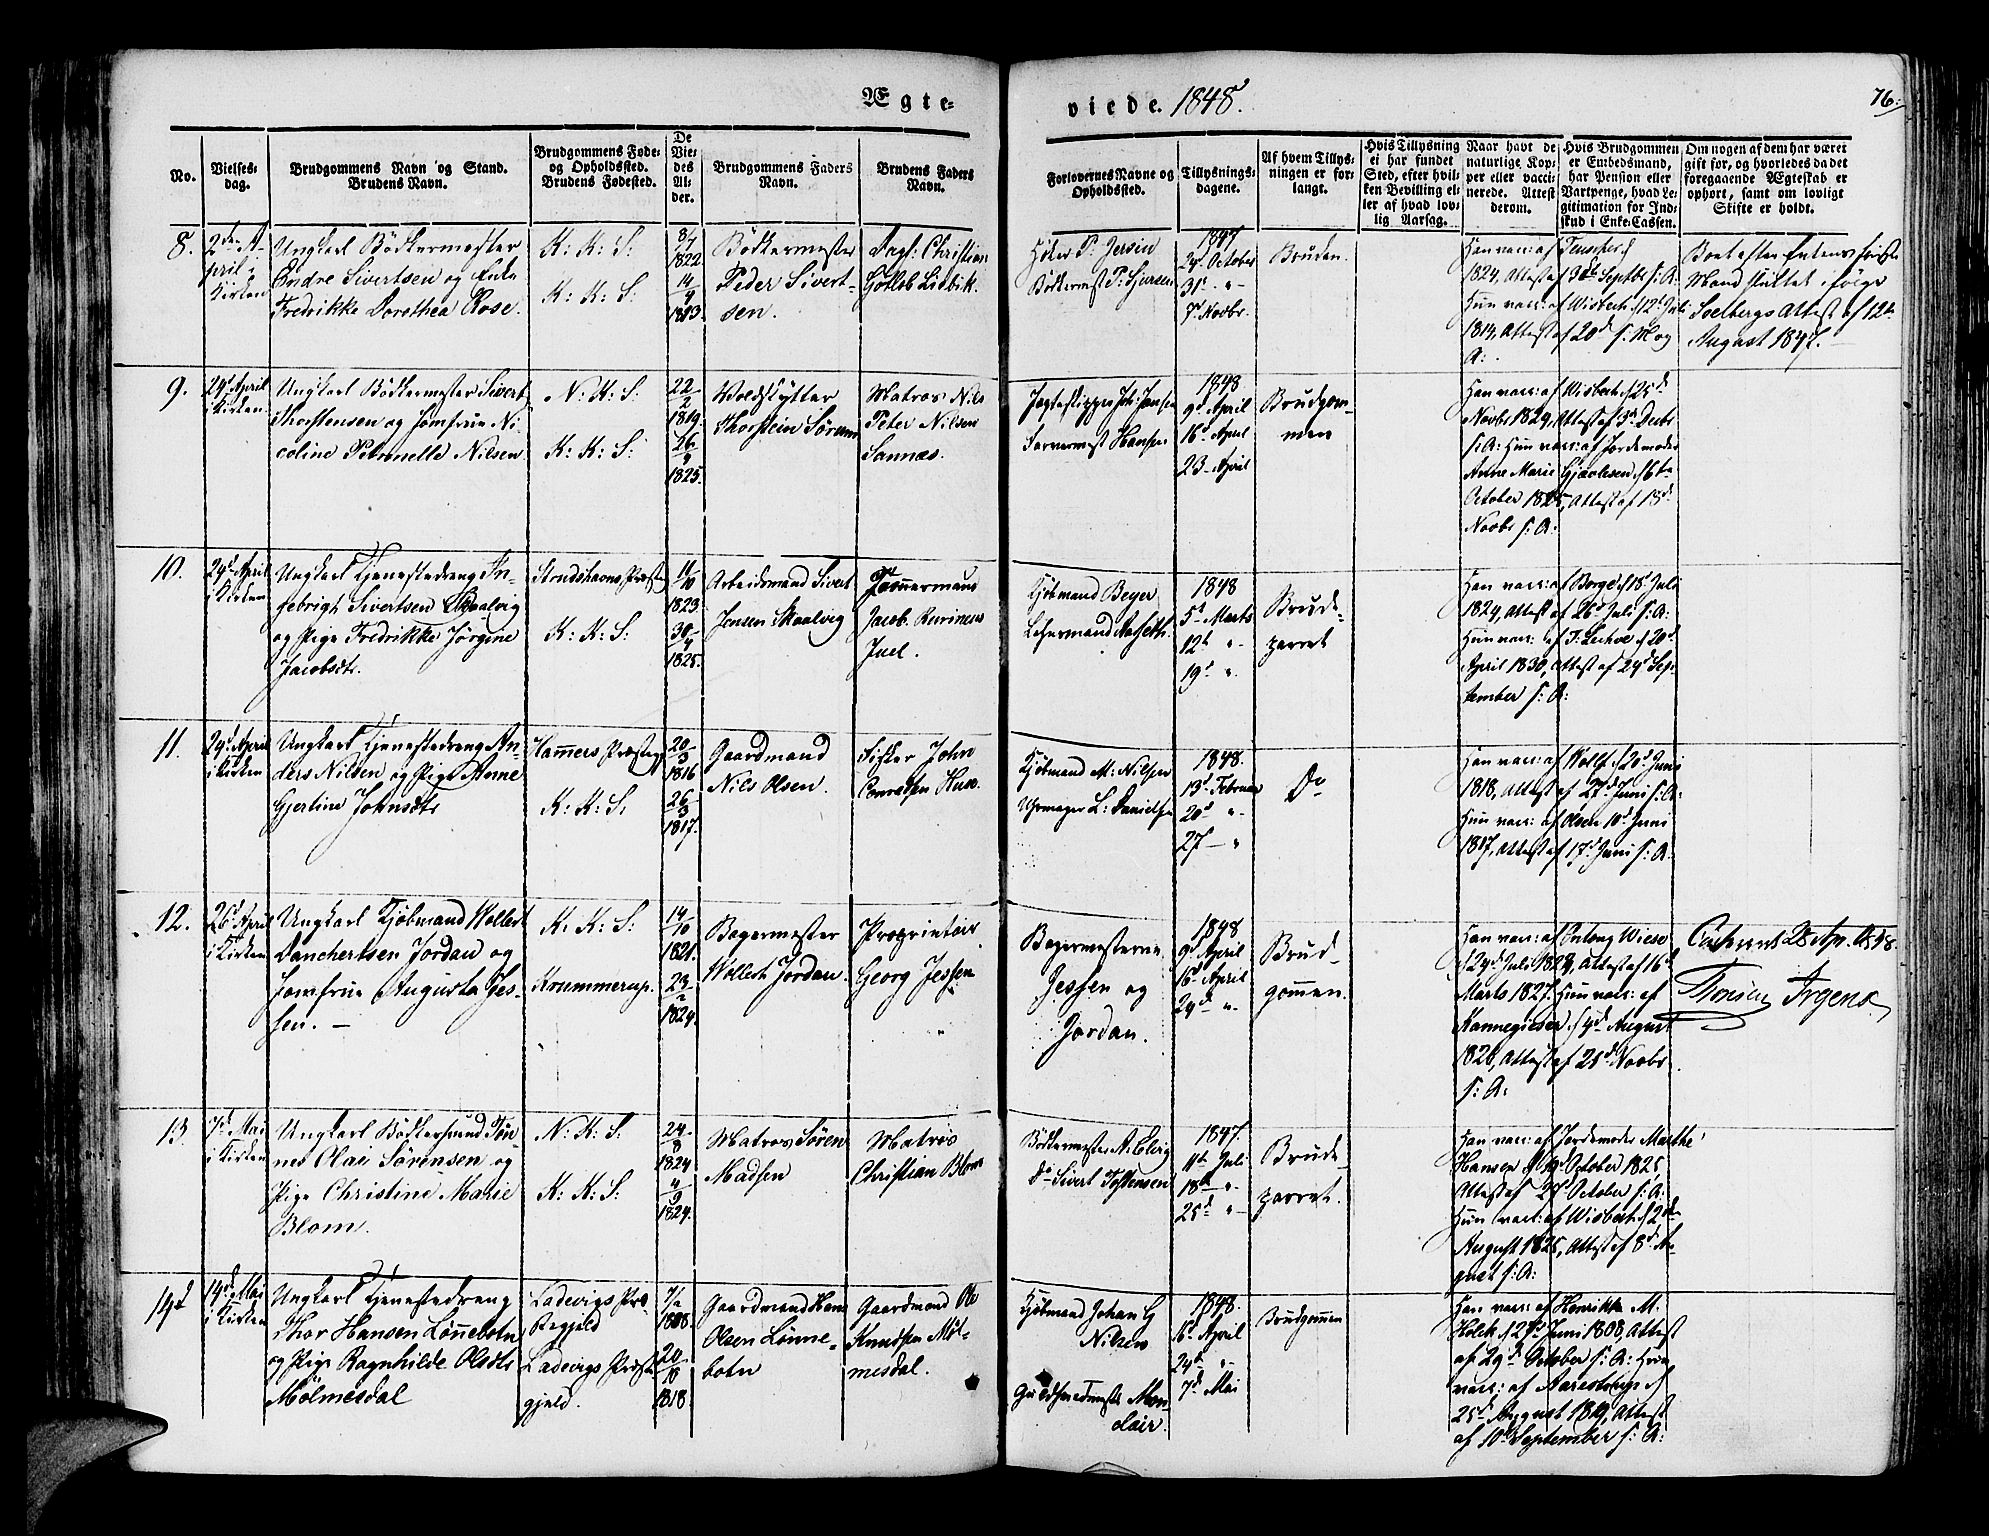 Ægte-
viede. 1848.
76.
No.
Vielses-
dag.
Brudgommens Navn og Stand.
Brudens Navn.
Brudgommens Føde-
og Opholdssted.
Brudens Fødested.
De
Vie-
des
Al-
der.
Brudgommens Faders
Navn.
Brudens Faders
Navn.
Forlovernes Navne og
Opholdssted.
Tillysnings-
dagene.
Af hvem Tillys-
ningen er for-
langt.
Hvis Tillysning
ei har fundet
Sted, efter hvil-
ken Bevilling el-
ler af hvad lov-
lig Aarsag.
Naar havt de
naturlige Kop-
per eller vacci-
nerede. Attest
derom.
Hvis Brudgommen
er Embedsmand,
har Pension eller
Vartpenge, hvad Le-
gitimation for Ind-
skud i Enke-Cassen.
Om nogen af dem har været
gift før, og hvorledes da det
foregaaende Ægteskab er
ophørt, samt om lovligt
Skifte er holdt.
8.
2de A-
pril i
Kirken
Ungkarl Bødkermester
Endre Sivertsen og Enke
Fredrikke Dorothea Rose.
K: K: S:
K: K: S:
8/7
1822
14/4
1813.
Bødkermester
Peder Sivert-
sen.
Christian
Gotlob Lidbik.
P. Jersin
Bødkermest P. Sjursen
1847
24d October
31t "
7d Novbr.
Bruden.
Han vacc: af
1824, Attest af 30d Septbr s: A:
Hun vacc: af Wisbech d 12d Juli
1814, Attest af 20d s: M og
A:
Boet efter Enkens første
Mand skiftet ifølge
Soelbergs Attest af 12te
August 1847.
9.
24d April
i Kirken
Ungkarl Bødkermester Sivert
Thorstensen og Jomfrue Ni-
coline Petronelle Nilsen
N: K: S:
K: K: S:
22/2
1819.
26/9
1825.
Voldskytter
Thorstein Sørum
Matros Nils
Peter Nilsen
Sannæs.
Jagteskipper Joh: Jansen
Farvermest Hansen
1848
9d April
16d April
23 April
Brudgom-
men
Han vacc: af Wisbech d 25d
Novbr 1829, Attest af 3d Decbr
s: A: Hun vacc: af Jordemoder
Anne Marie Gjavlesen d 6te
October 1825, Attest af 13d
Novbr s: A:
10.
24d April
i Kirken
Ungkarl Tjenestedreng In-
febrigt Sivertsen Skaalvig
og Pige Fredrikke Jørgine
Jacobsdtr.
Strudshavns Præste
K: K: S:
11/10
1823.
30/4
1825.
Arbeidsmand Sivert
Jensen Skaalvig
Tømmermand
Jacob
Juel.
Kjøbmand Beyer
Aaseth.
1848
5d Marts
12te "
19d "
Brude-
parret
Han vacc: af Borge d 18d Juli
1824, Attest af 26d Juli s: A:
Hun vacc: af T: Lechve d 20d
April 1830, Attest af 24d Sep-
tember s: A:
11.
24d April
i Kirken
Ungkarl Tjenestedreng An-
ders Nilsen og Pige Anne
Gjertine Johnsdtr
Hammers Præsteg
K: K: S:
20/3
1816
26/3
1817.
Gaardmand
Nils Olsen.
Fisker John
Conradsen Huse.
Kjøbmand M: Nilsen
Uhrmager L: Danielsen
1848.
13d Februar
20d "
27 "
Do
Han vacc: af Wolff d 20d Juni
1818, Attest af 27d Juni s: A:
Hun vacc: af Olsen 10d Juni
1817, Attest af 17d Juni s: A:
12.
26d April
i Kirken
Ungkarl Kjøbmand Wollert
Danchertsen Jordan og
Jomfrue Augusta Jes-
sen.
K: K: S:
Krummerup.
14/10
1821.
23/2
1824.
Bagermester
Wollert Jordan.
Proprietair
Georg Jessen
Bagermesterne
Jessen og
Jordan.
1848
9d April
16d April
24d "
Brud-
gommen.
Han vacc: af Wiese
d 24d Juli 1823, Attest af 16d
Marts 1827. Hun vacc: af
Kannegieser d 4d August
1826, Attest af 25d Novbr
s: A:
13.
7d Mai
i Kirken
Ungkarl Bødkersvend Tøn-
nes Olai Sørensen og
Pige Christine Marie
Blom.
N: K: S:
K: K: S:
24/8
1824
4/9
1824.
Matros Søren
Madsen
Matros
Christian Blom
Bødkermester A. Clerig
Do Sivert Tostensen
1847.
11te Juli
18de "
25d "
Brude-
parret.
Han vacc: af Jordemoder Marthe
Hansen d 19d October 1825,
Attest af 27d October s: A:
Hun vacc: af Wisbech d 2den
August 1825, Attest af 8d Au-
gust s: A:
14d
14d Mai
i Kirken
Ungkarl Tjenestedreng
Thor Hansen Lønnebotn
og Pige Ragnhilde Olsdtr
Mølmesdal
Ladevigs Præ-
stegjeld
Ladevigs Præste-
gjeld.
1808.
20/10
1818.
Gaardmand Hans
Olsen Lønne-
botn
Gaardmand Ole
Knudsen Møl-
mesdal.
Kjøbmand Johan G
Nilsen
Guldsmedmester Mon-
clair.
1848.
16d April
24d "
7d Mai
Brudgommen
Han vacc: af Henrikke M.
Holck d 27d Juni 1808, Attest
af 29d October s: A: Hun
vacc: af Aarestrup d
25d August 1819, Attest
af 10d September s: A: